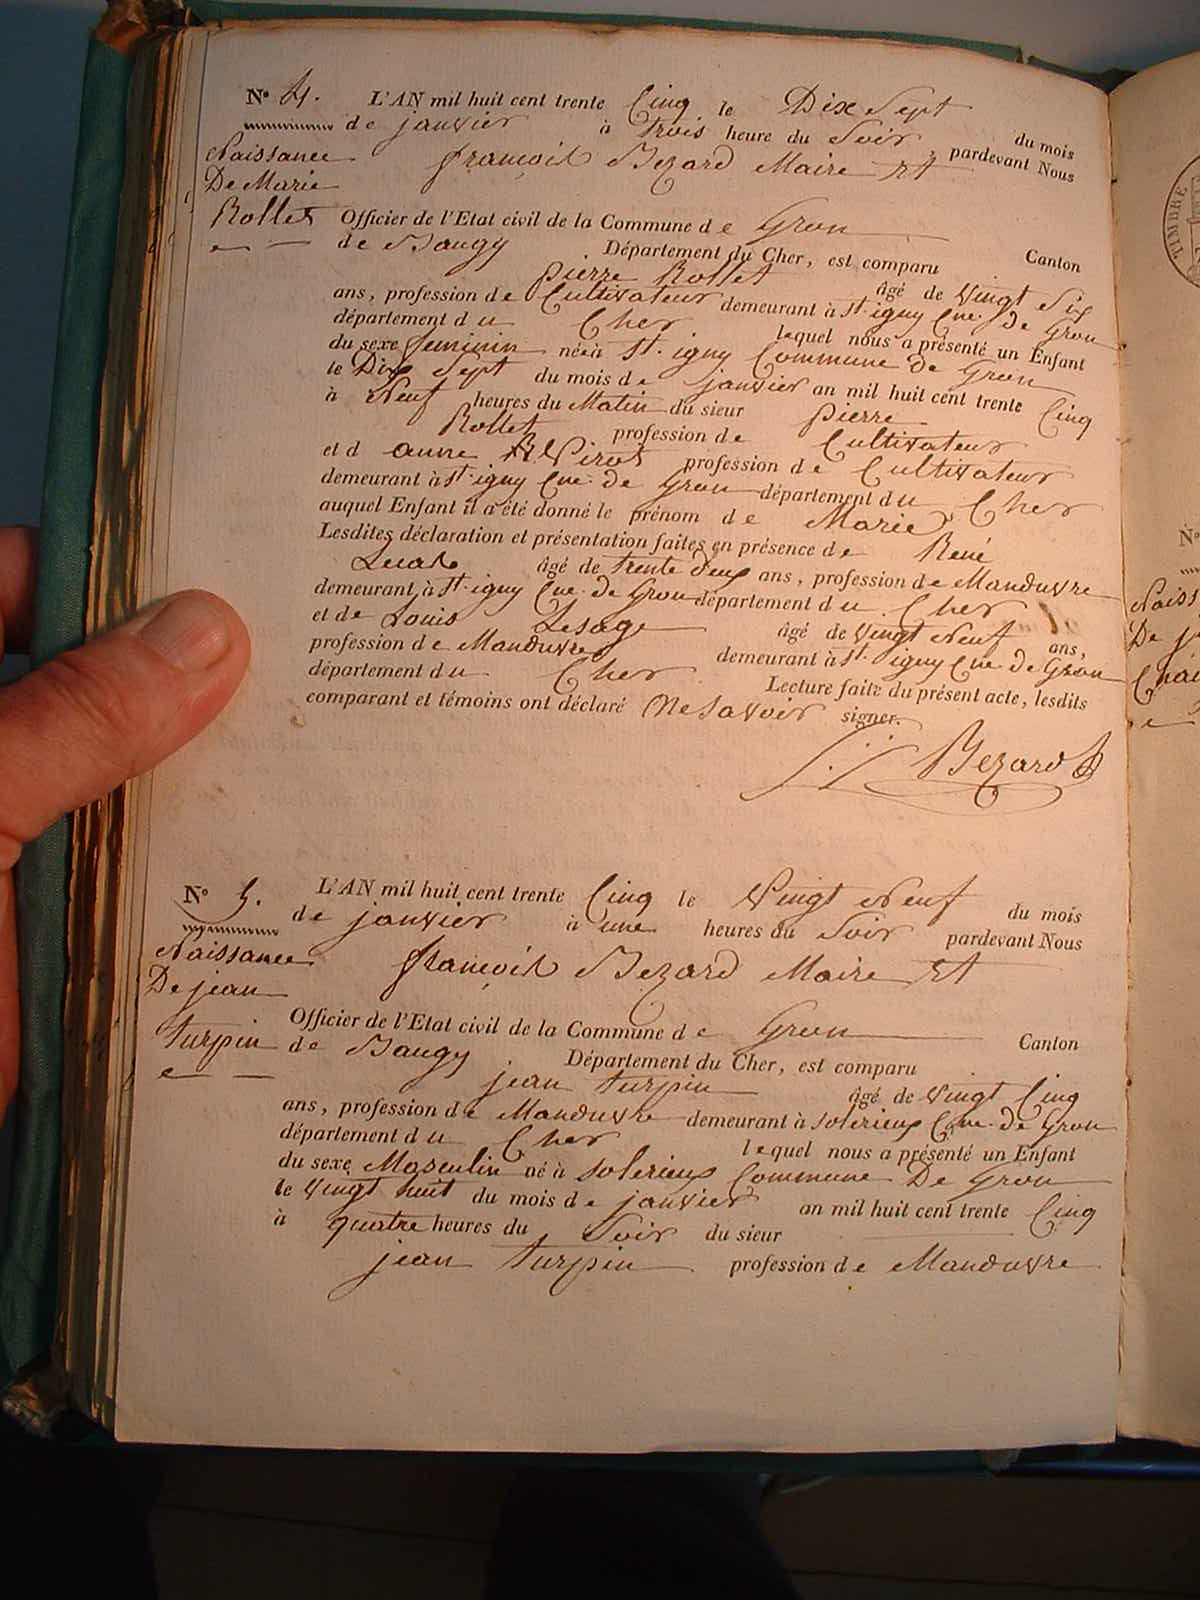 N° 4.
Naissance
De Marie
Rollet
L'AN mil huit cent trente Cinq le Dix Sept du mois
de janvier à trois heure du Soir, pardevant Nous
françois Bezard Maire Et
Officier de l'Etat civil de la Commune de Gron Canton
de Baugy Département du Cher, est comparu
pierre Rollet âgé de Vingt Six
ans, profession de Cultivateur demeurant à St. igny Cne. de Gron
département du Cher lequel nous a présenté un Enfant
du sexe feminin née à St. igny Commune de Gron
le Dix Sept du mois de janvier an mil huit cent trente Cinq
à Neuf heures du Matin du sieur pierre
Rollet profession de Cultivateur
et d anne profession de Cultivateur
demeurant à St. igny Cne. de Gron département du Cher
auquel Enfant il a été donné le prénom de Marie
Lesdites déclaration et présentation faites en présence de René
âgé de trente deux ans, profession de Manduvre
demeurant à St. igny Cne. de Gron département du Cher
et de Louis Lesage âgé de Vingt Neuf ans,
profession de Manduvre demeurant à St. igny Cne de Gron
département du Cher Lecture faite du présent acte, lesdits
comparant et témoins ont déclaré Ne Savoir signer.
Bezard
N° 5.
Naissance
De jean
turpin
L'AN mil huit cent trente Cinq le Vingt Neuf du mois
de janvier à une heures du Soir pardevant Nous
françois Bezard Maire Et
Officier de l'Etat civil de la Commune de Gron Canton
de Baugy Département du Cher, est comparu
jean turpin âgé de Vingt Cinq
ans, profession de Manduvre demeurant à Solerieux Cne. de Gron
département du Cher lequel nous a présenté un Enfant
du sexe Masculin né à Solerieux Commune De Gron
le Vingt huit du mois de janvier an mil huit cent trente Cinq
à quatre heures du Soir du sieur
jean turpin profession de Manduvre
N°
TIMBRE